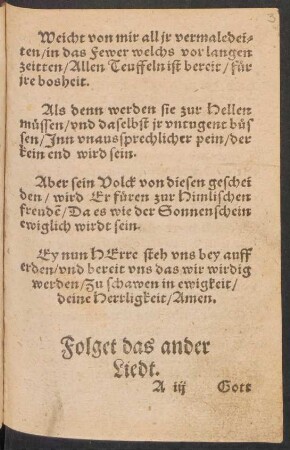 3
Weicht von mir all jr vermaledei-
ten/in das Fewer welchs vor langen
zeitten/Allen Teuffeln ist bereit/für
jre bosheit.
Als denn werden sie zur Hellen
müssen/vnd daselbst jr vntugent büs
sen/Inn vnaussprechlicher pein/der
kein end wird sein.
Aber sein Volck von diesen geschei
den/wird Er füren zur Himlischen
freudē/Da es wie der Sonnenschein
ewiglich wirdt sein.
Ey nun HErre steh vns bey auff
erden/vnd bereit vns das wir wirdig
werden/Zu schawen in ewigkeit/
deine Herrligkeit/Amen.
Folget das ander
Liedt.
A iij Gott